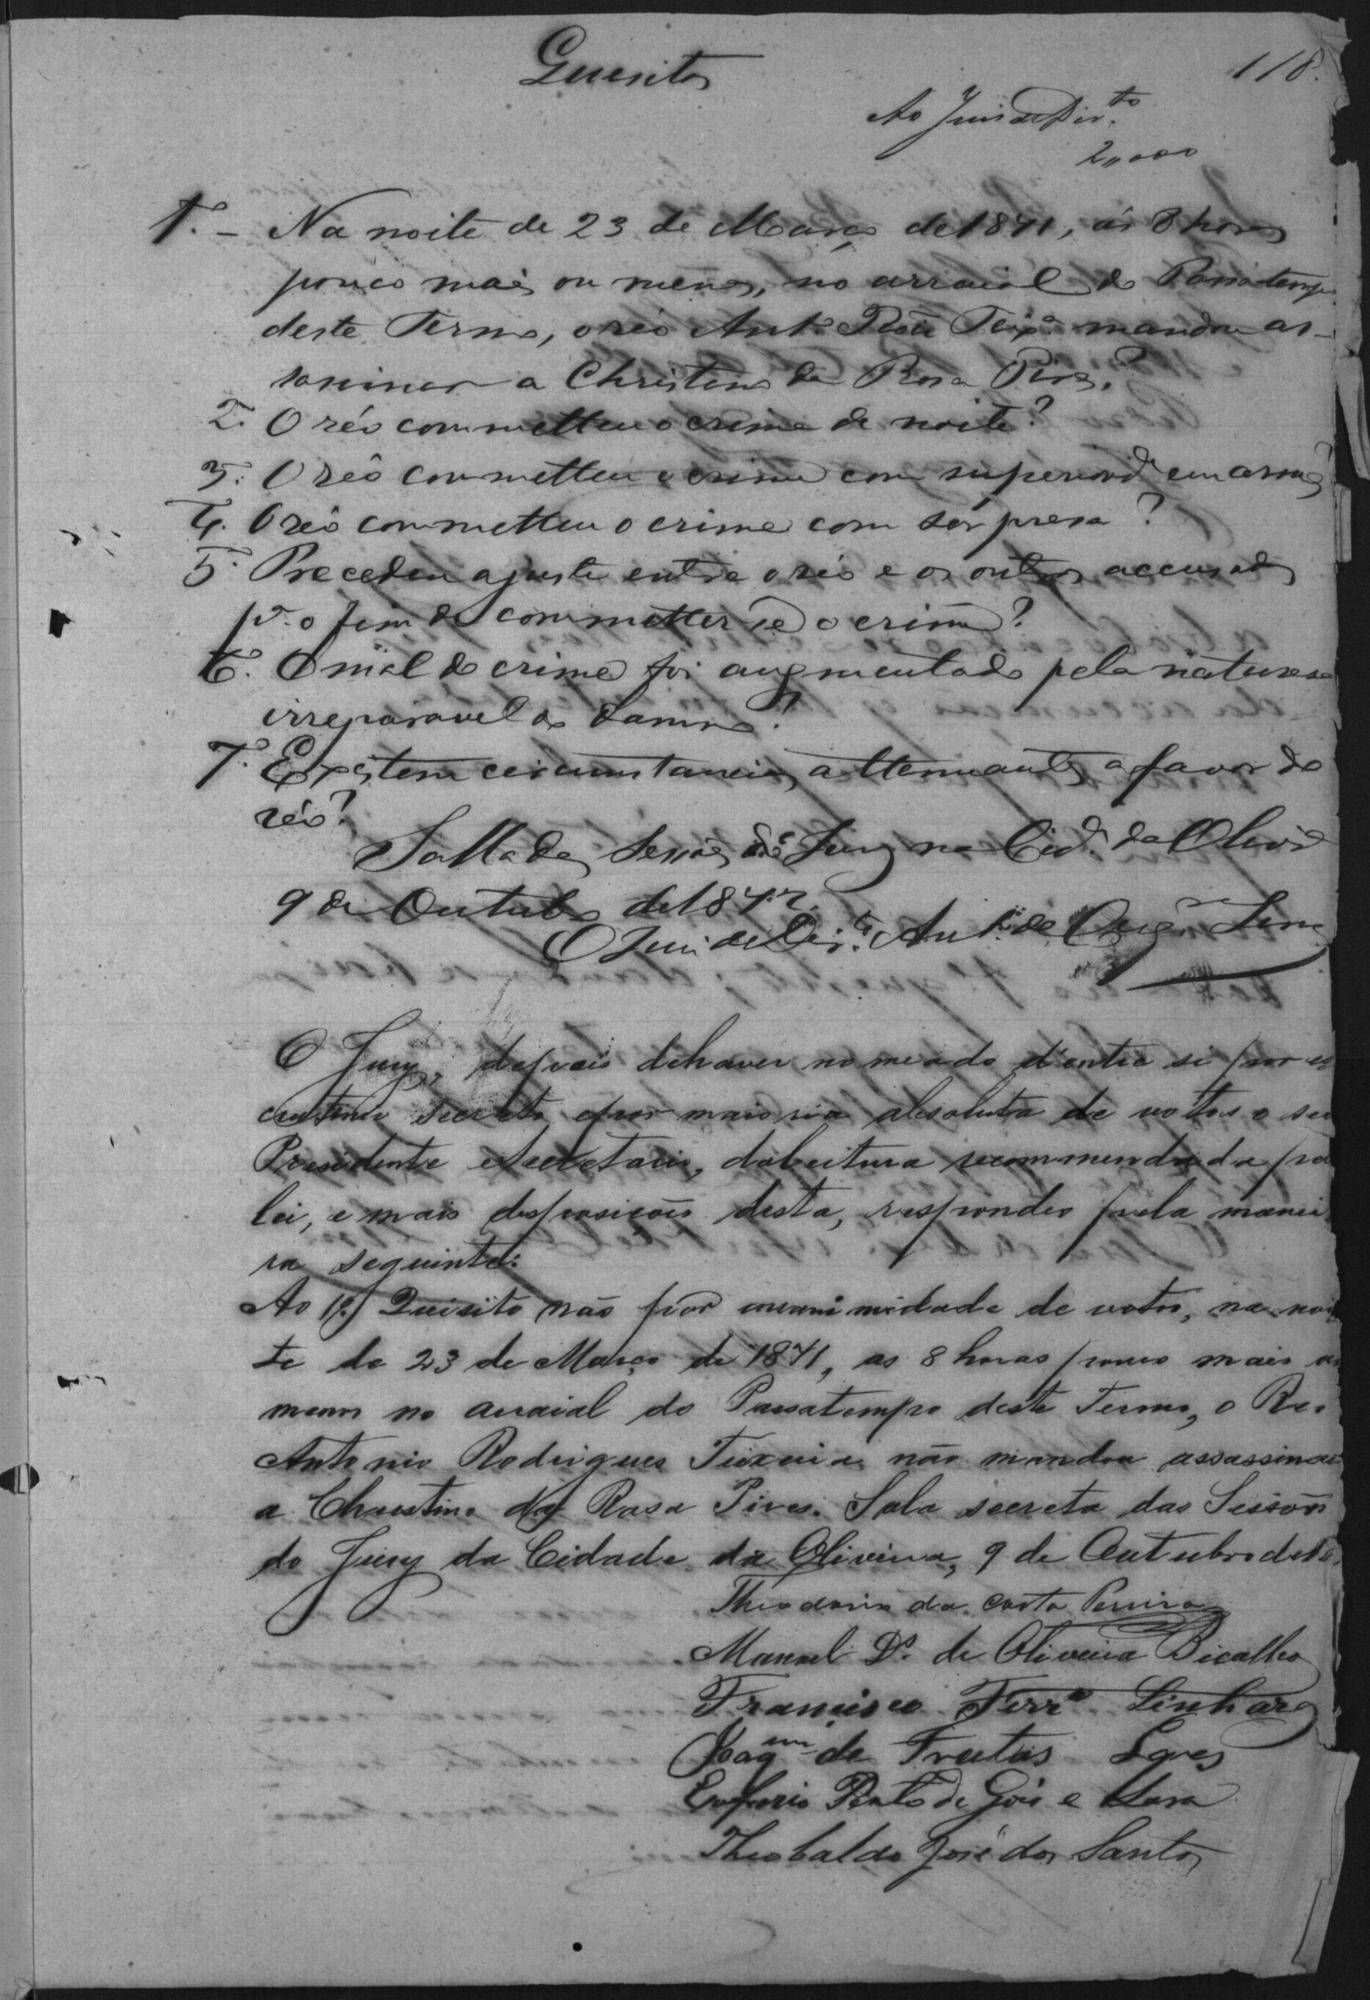 Quesitos
118.
Ao Juis de Dir.to
2,,000
1.º - Na noite de 23 de Março de 1871, ás 8 horas
pouco mais ou menos, no arraial do Passatempo
deste Termo, o réo Ant.º Teix.ª mandou as-
sassinar a Christino da Rosa Pires?
2.º O réo commetteu o crime de noite?
3.º O réo commetteu o crime com superiord.e em armas?
4.º O réo commetteu o crime com sorpresa?
5.º Precedeu ajuste entre o réo e os outros accusados
p.ª o fim de commetter-se o crime?
6.º O mal do crime foi augmentado pela naturesa
irreparavel do damno?
7.º Existem circumstancias attenuantes a favor do
réo?
Salla das Sessões do Jury na Cid.e da Oliv.ª
9 de Outubro de 1872.
O Juis de Dir.to Ant.º de Lima
O Jury, depois de haver nomeado d'entre si por es
crutinio secreto e por maioria absoluta de votos o seu
Presidente e Secretario, da leitura recommendada pela
lei, e mais disposições desta, respondeo pela manei
ra seguinte:
Ao 1º Quisito não por unanimidade de votos, na noi
te de 23 de Março de 1871, as 8 horas pouco mais ou
menos no arraial do Passatempo deste Termo, o Reo
Antonio Rodrigues Teixeira não mandou assassinar
a Christino da Rosa Pires. Sala secreta das Sessões
do Jury da Cidade da Oliveira, 9 de Outubro de 18
Theodorio da Costa Pereira
Manoel D.º de Oliveira Bicalho
Francisco Ferr.ª Linhares
Joaq.m de Freitas
Euphorio Pinto de Góis e Lara
Theobaldo José dos Santos